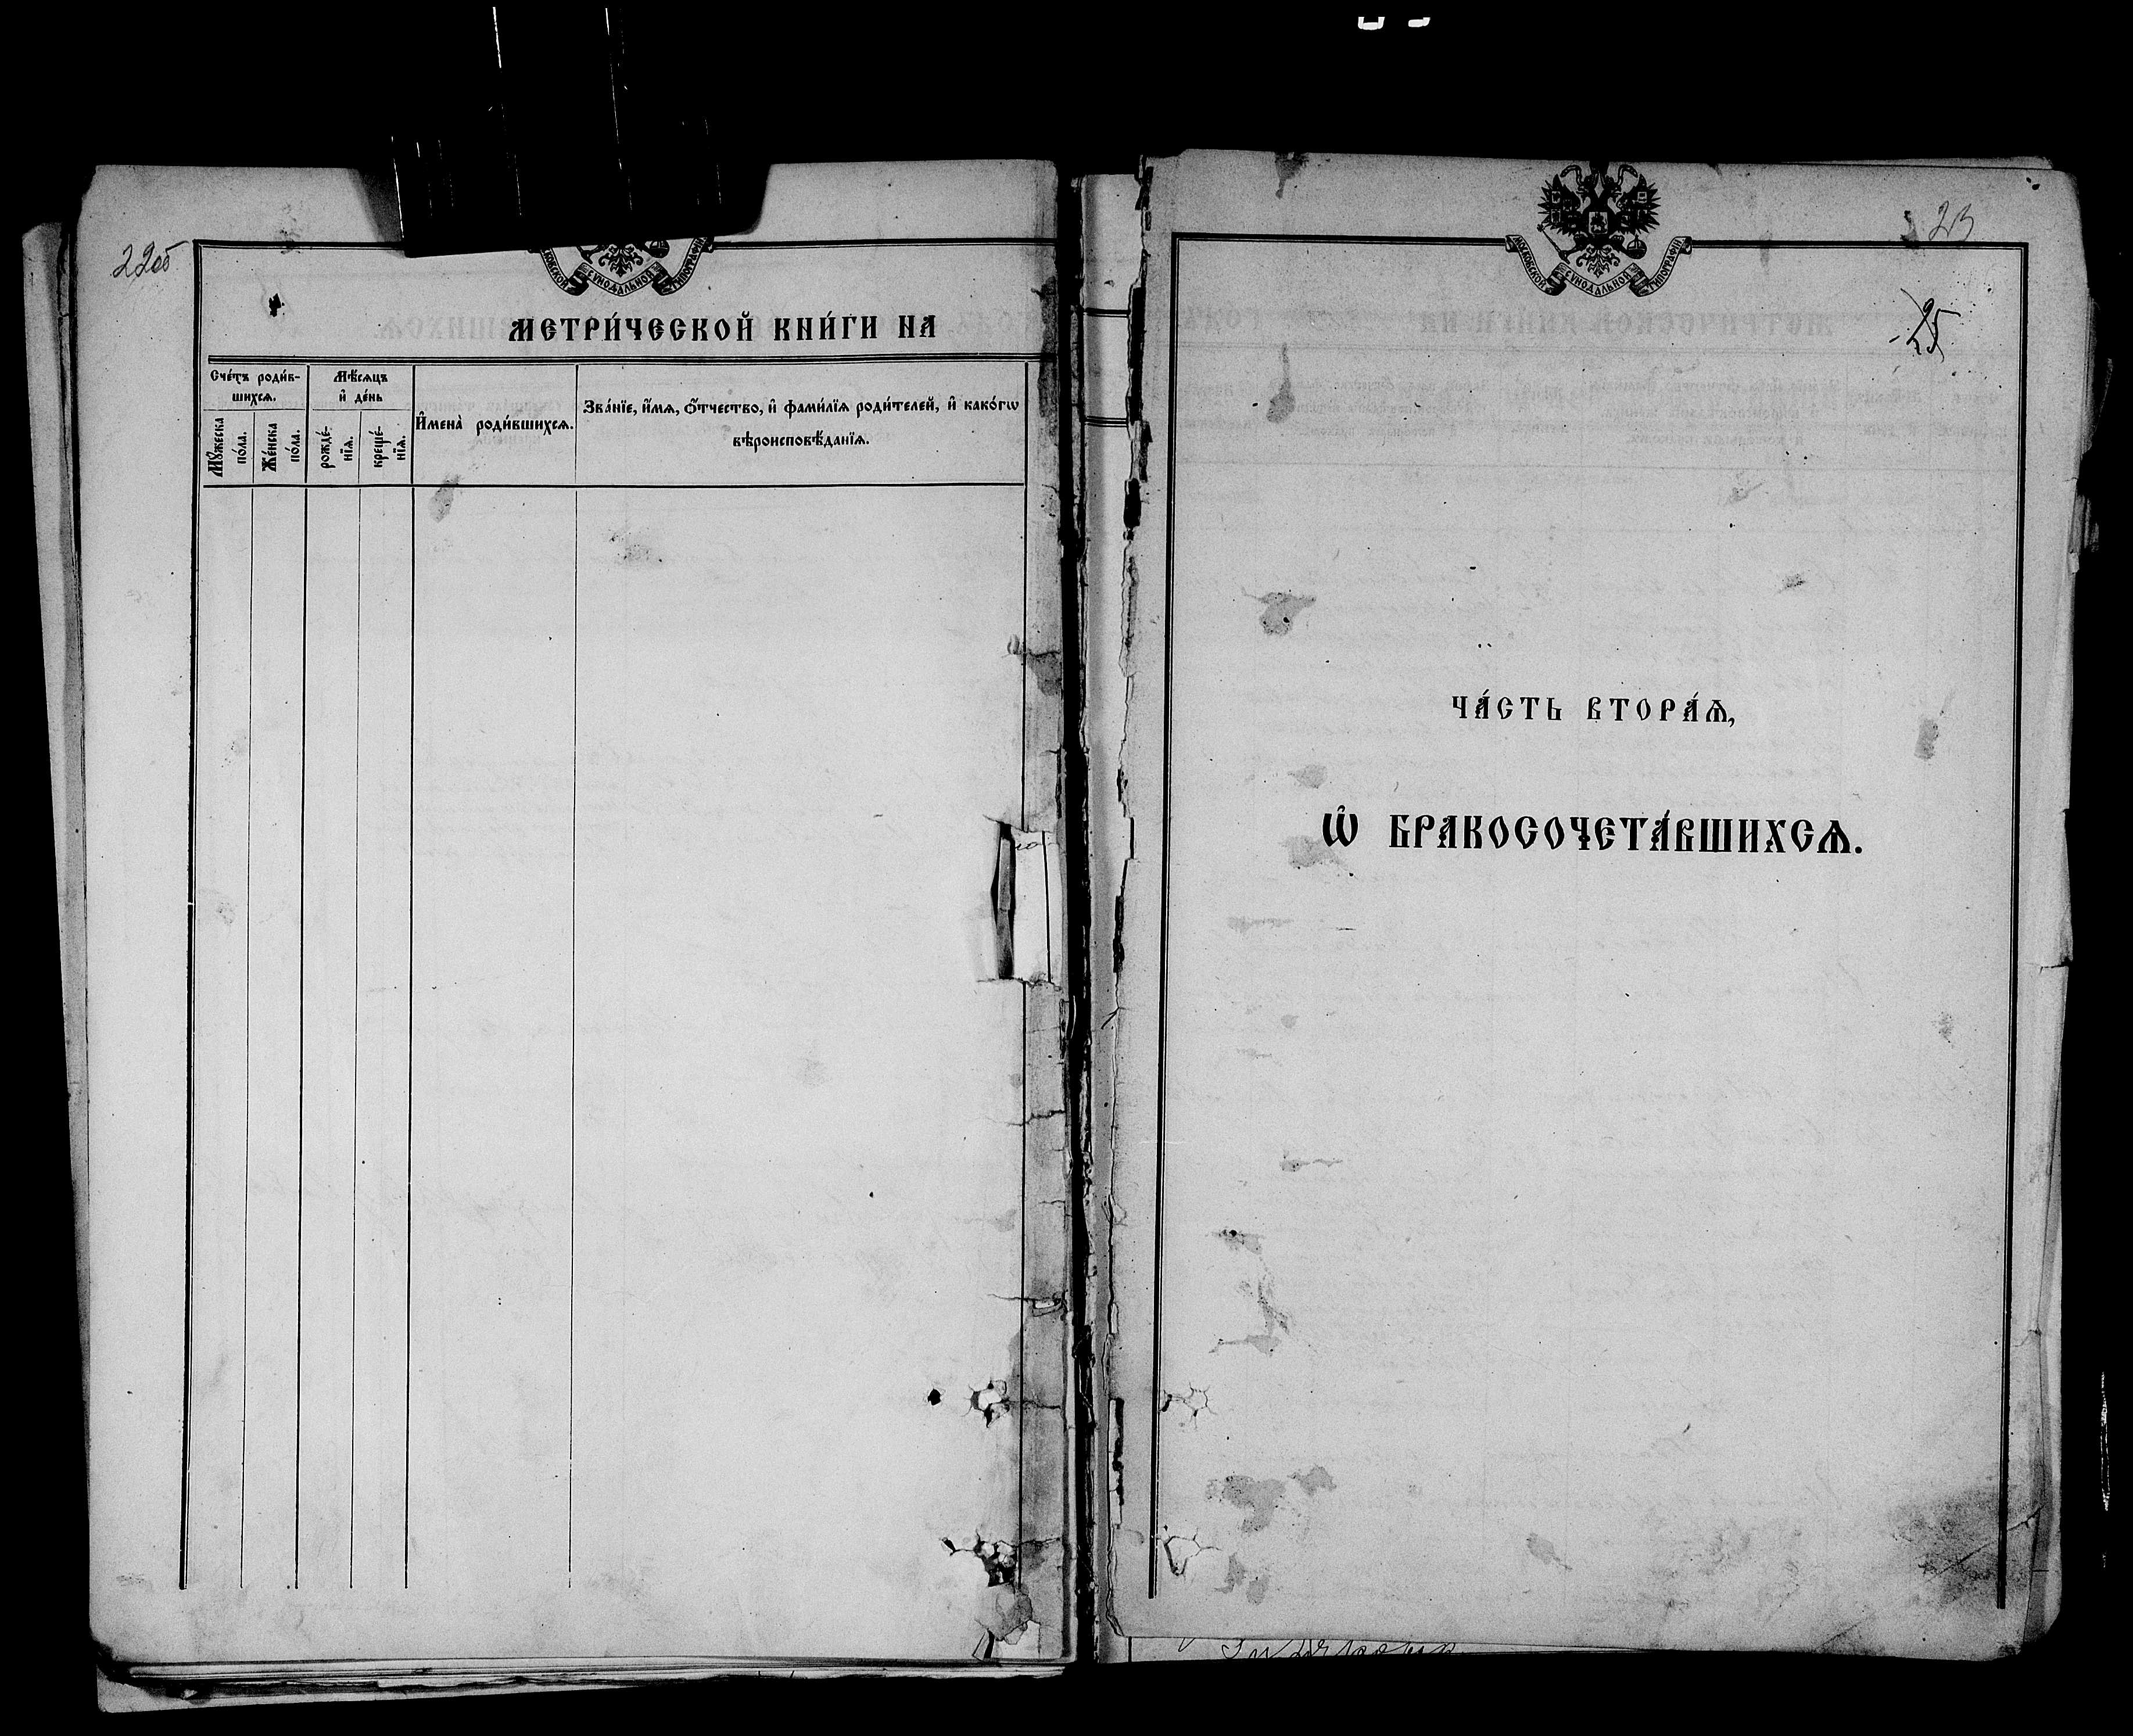 22об
МОСКОВСКОЙ СѴНОДАЛЬНОЙ ТИПОГРАФІИ
МЕТРИ́ЧЕСКОЙ КНИ́ГИ НА
Сче́тъ роди́в-
шихсѧ.
Мѣ́сѧцъ
и҆ де́нь
И҆мена̀ роди́вшихсѧ.
Зва́нїе, и҆́мѧ, ѻ҆́тчество, и҆ фами́лїѧ роди́телей, и҆ како́гѡ
вѣроисповѣ́данїѧ.
Мꙋ́жеска
по́ла.
Же́нска
по́ла.
рожде́-
нїѧ.
креще́-
нїѧ.
23
МОСКОВСКОЙ СѴНОДАЛЬНОЙ ТИПОГРАФІИ
25
ЧА́СТЬ ВТОРА́Ѧ,
Ѽ БРАКОСОЧЕТА́ВШИХСѦ.